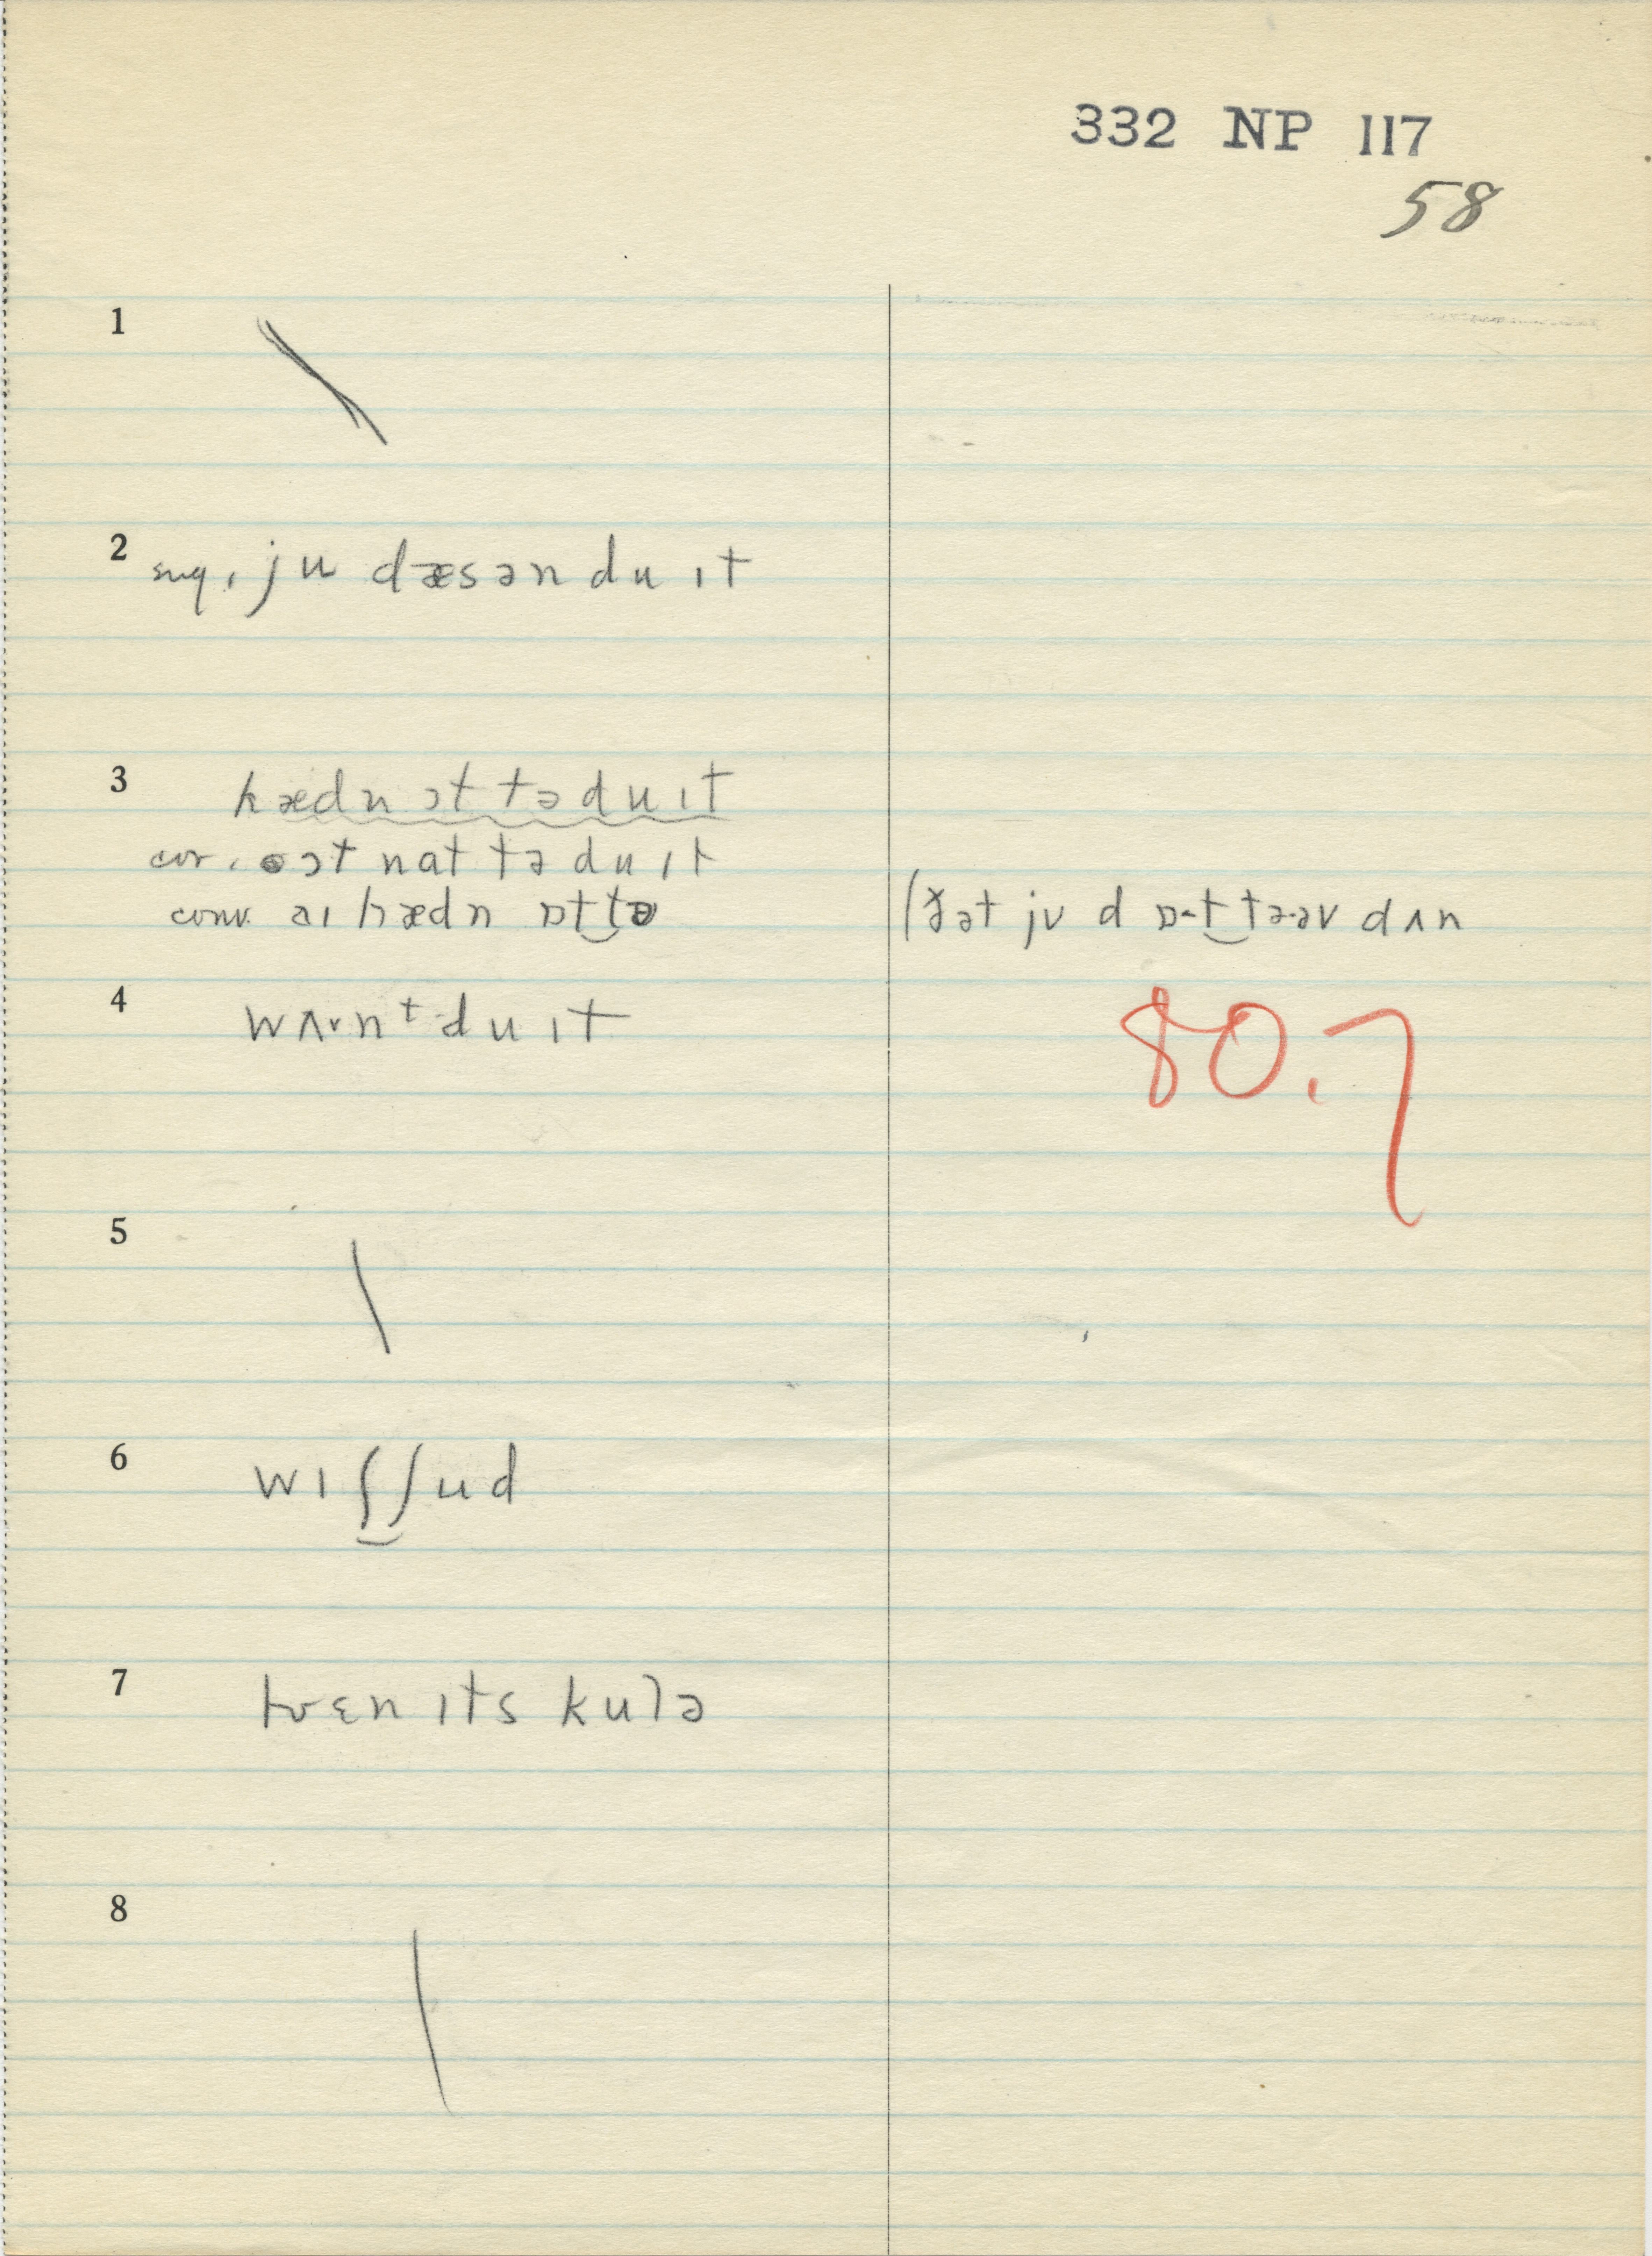 332 NP 117
58
1
2 sug. ju dæsən du ɪt
3 hædn ɔt tə du ɪt
cor. ɔt nat tə du ɪt
conv. aɪ hædn ɒt‿tə (ðət jʊ d ɒ-t‿tə-əv dʌn
4 wʌ·nᵗ du ɪt
80.7
5
6 wɪʃ‿ʃud
7 ɛn ɪts kulə
8